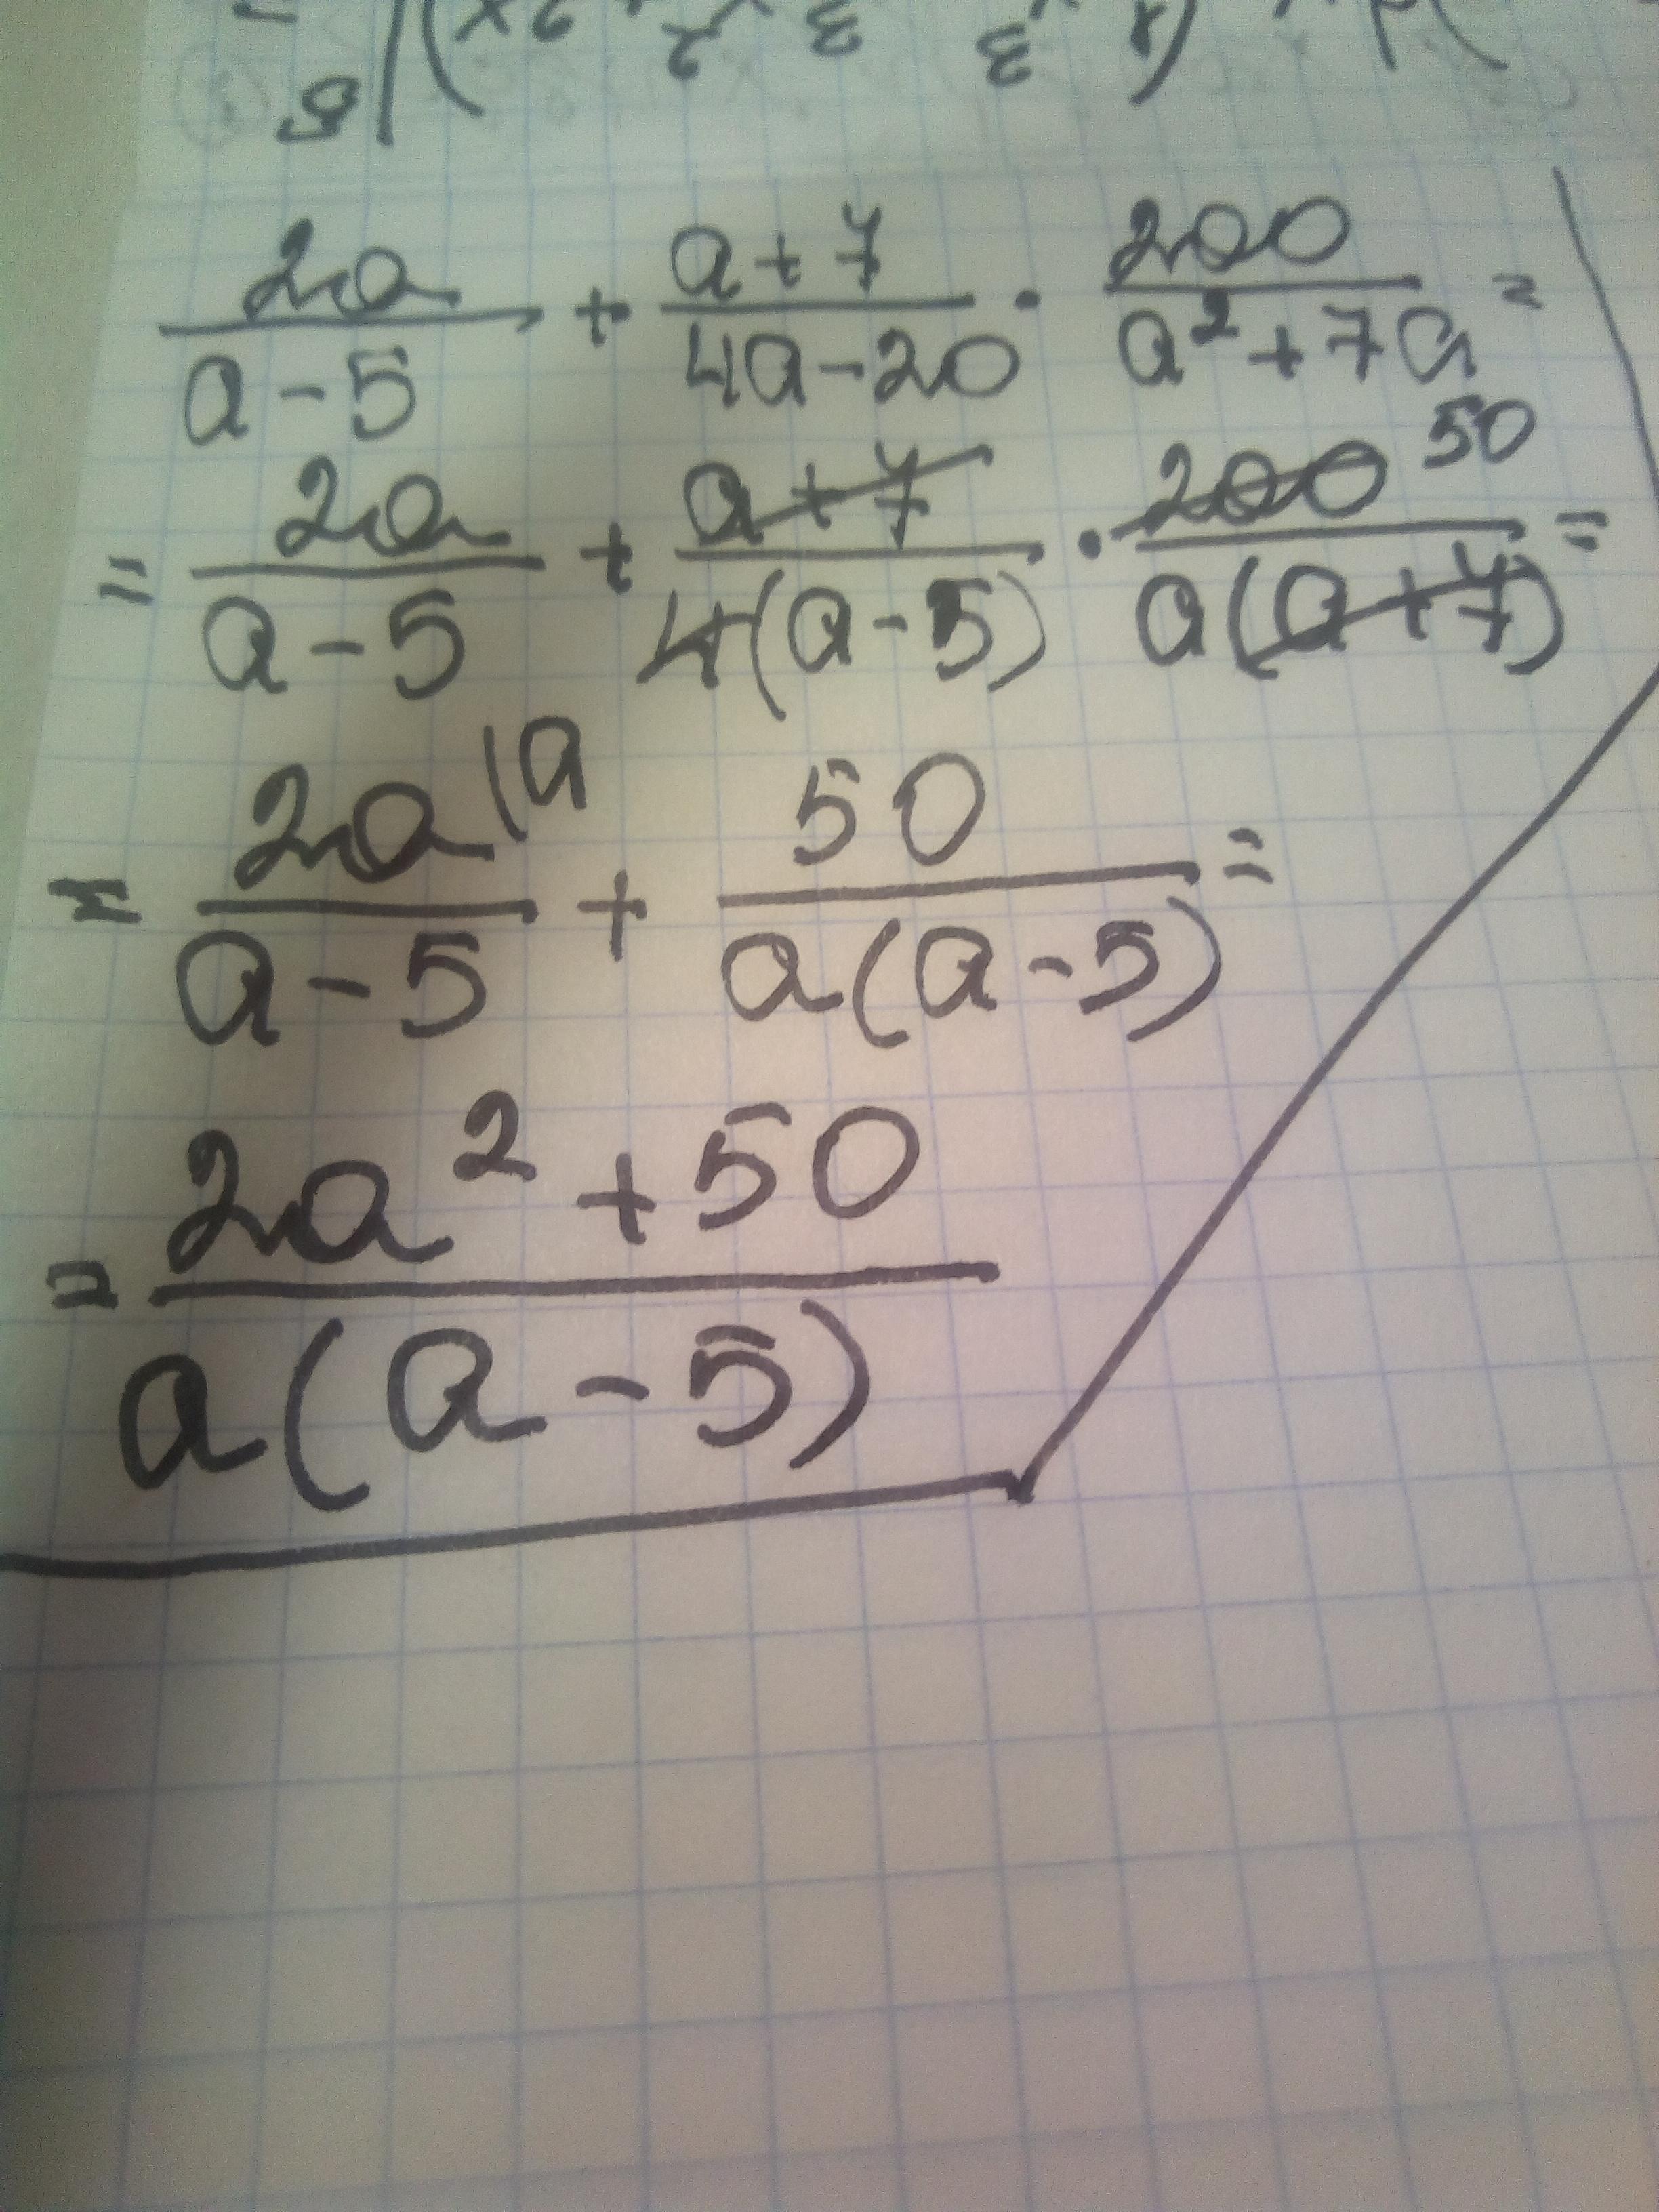 2a/(a-5) + (a+7)/(4a-20) · 200/(a²+7a) =
= 2a/(a-5) + (a+7)/(4(a-5)) · 200 50/(a(a+7)) =
= 2a\a/(a-5) + 50/(a(a-5)) =
= (2a²+50)/(a(a-5))